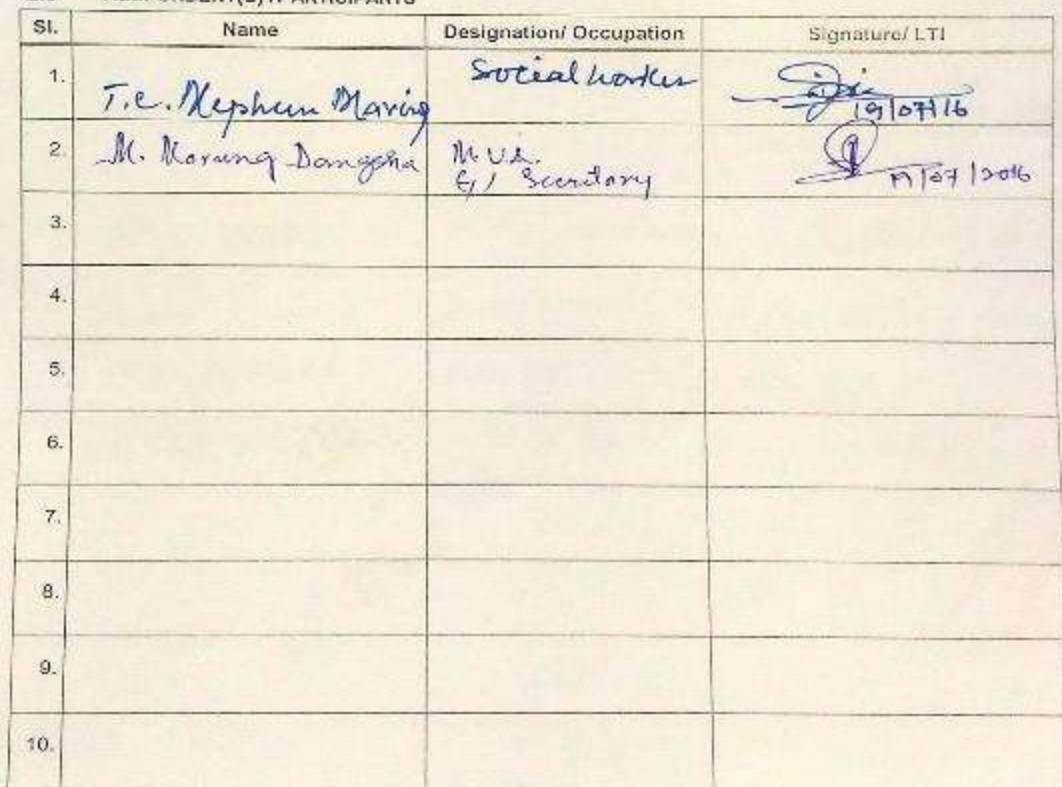 Sl. Name Designation/ Occupation Signature/ LTI
1. T.C. Maring Social worker 19/07/16
2. M. Korung Dangsha M.U.L.
G/ Secretary 19/07/2016
3.
4.
5.
6.
7.
8.
9.
10.